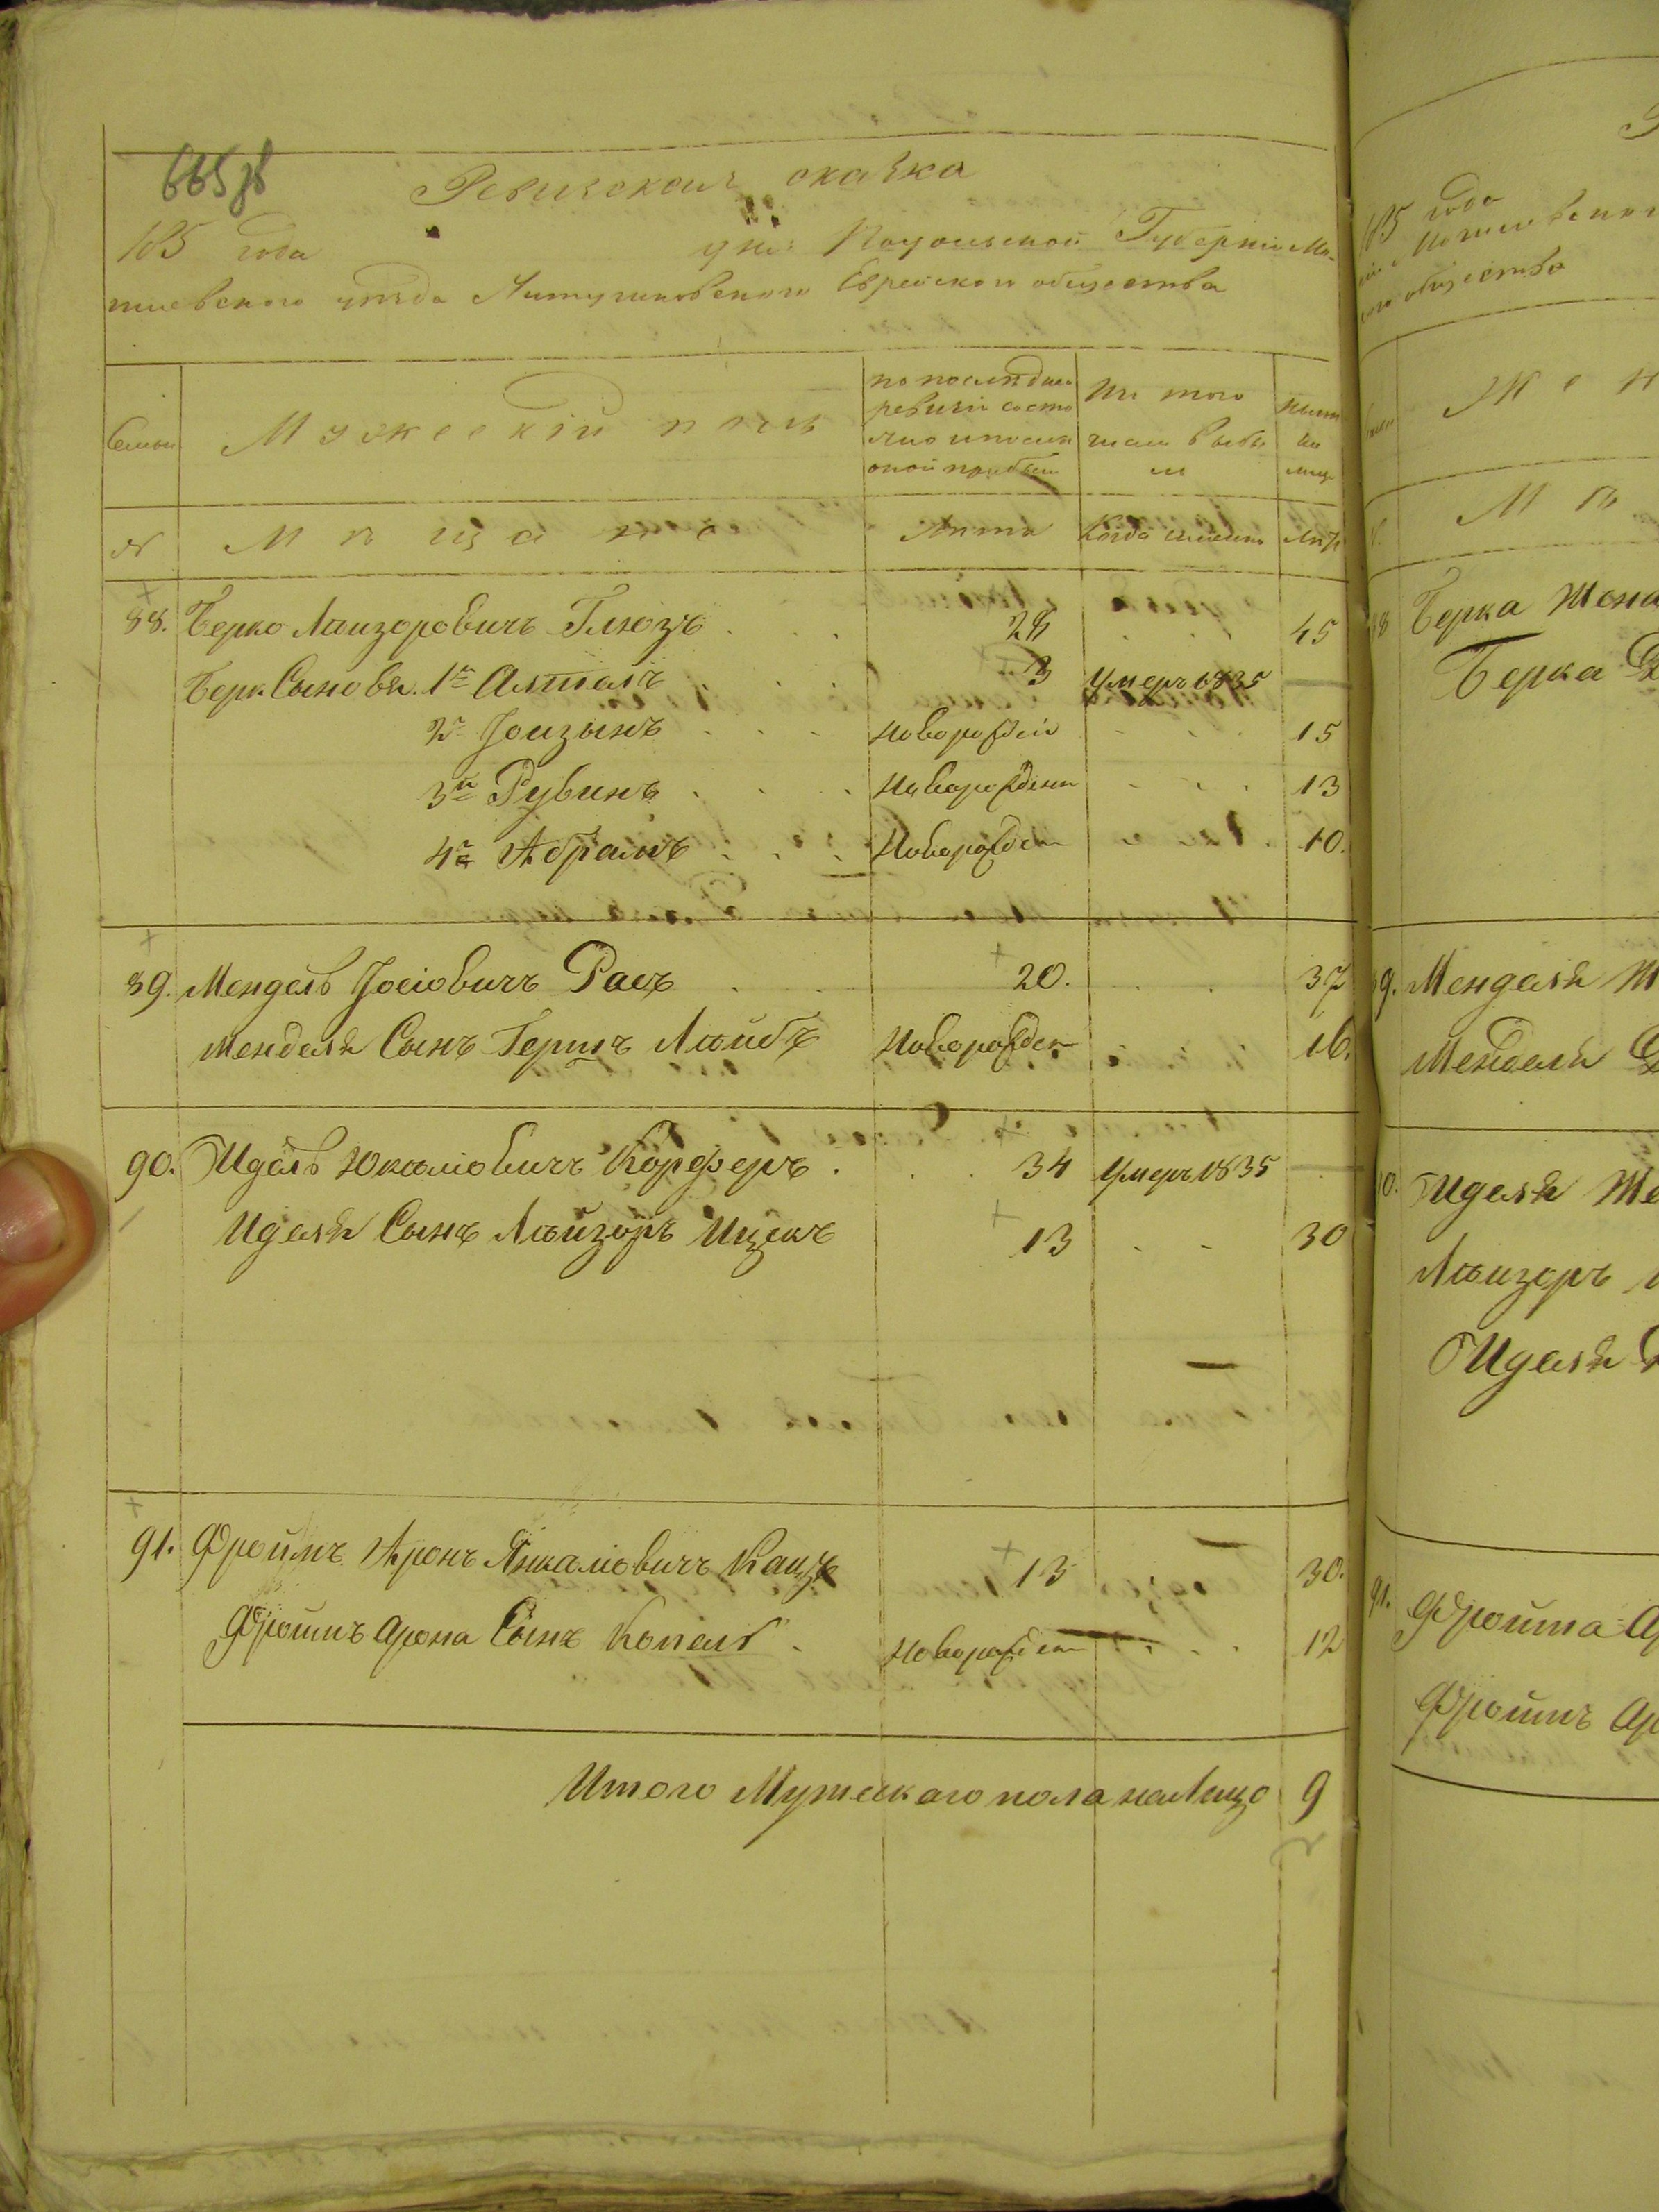 665об
Ревизская сказка
185 года дня Подольской Губерніи Мо-
гилевского уѣзда Лучинскаго Еврейского общества
Семьи
Мужескій полъ
по послѣдней
ревизіи состо
яло и послѣ
оной прибыло
Из того
числа выбы
ло
нынѣ
на
лицо
№
Мѣщане
Лѣта
Когда именно
Лѣта
88. Берко Лейзоровичъ Глюзъ 28 45
Берк. Сыновья. 1й Алтеръ 3 Умеръ 1835
2й Іойзынъ новорожден 15
3й Рубинъ новорожден 13
4й Абрамъ Новорожден 10.
89. Мендель Іосіовичъ Расъ 20. 37
Менделя Сынъ Гершъ Лейбъ Новорожден 16.
90. Идель Юкеліовичъ Корферъ 34 Умеръ 1835
Иделя Сынъ Лейзоръ Ицекъ 13 30
91. Фроимъ Аронъ Янкеліовичъ Кацъ 13 30.
Фроимъ Арона Сынъ Копель Новорожден 12
Итого Мужескаго пола налицо 9
185 года
общества
Жен
Мѣ
88 Берка Жена
Берка
89. Менделя
Менделя
90. Иделя Же
Лейзоръ
Иделя
91. Фройма Ар
Фроимъ Ар